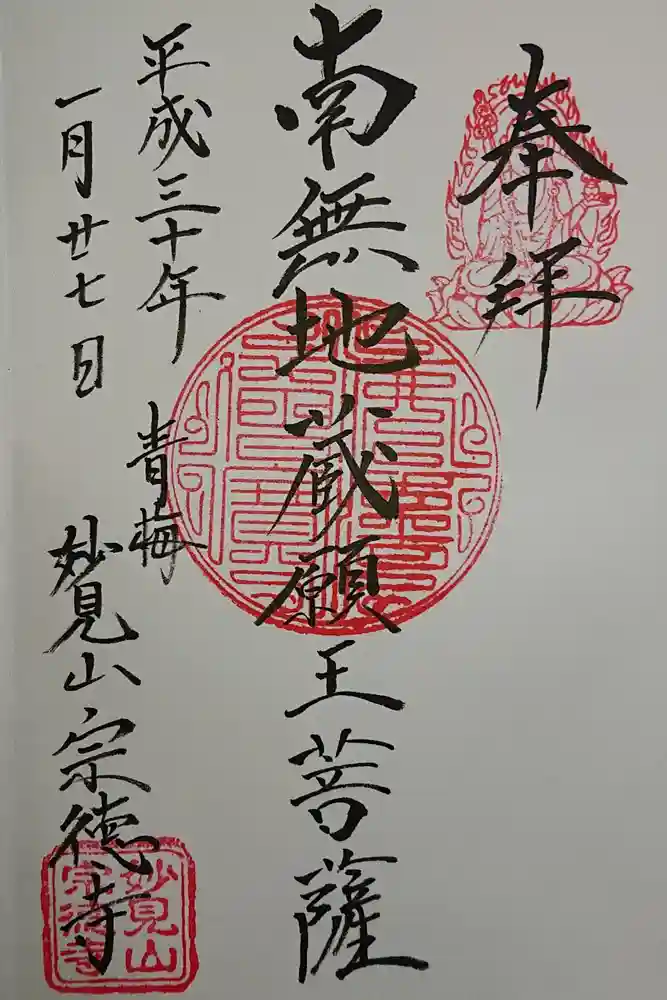 奉拝
南無地蔵願王菩薩
平成三十年
一月廿七日
青梅
妙見山宗徳寺
妙見山
宗徳寺